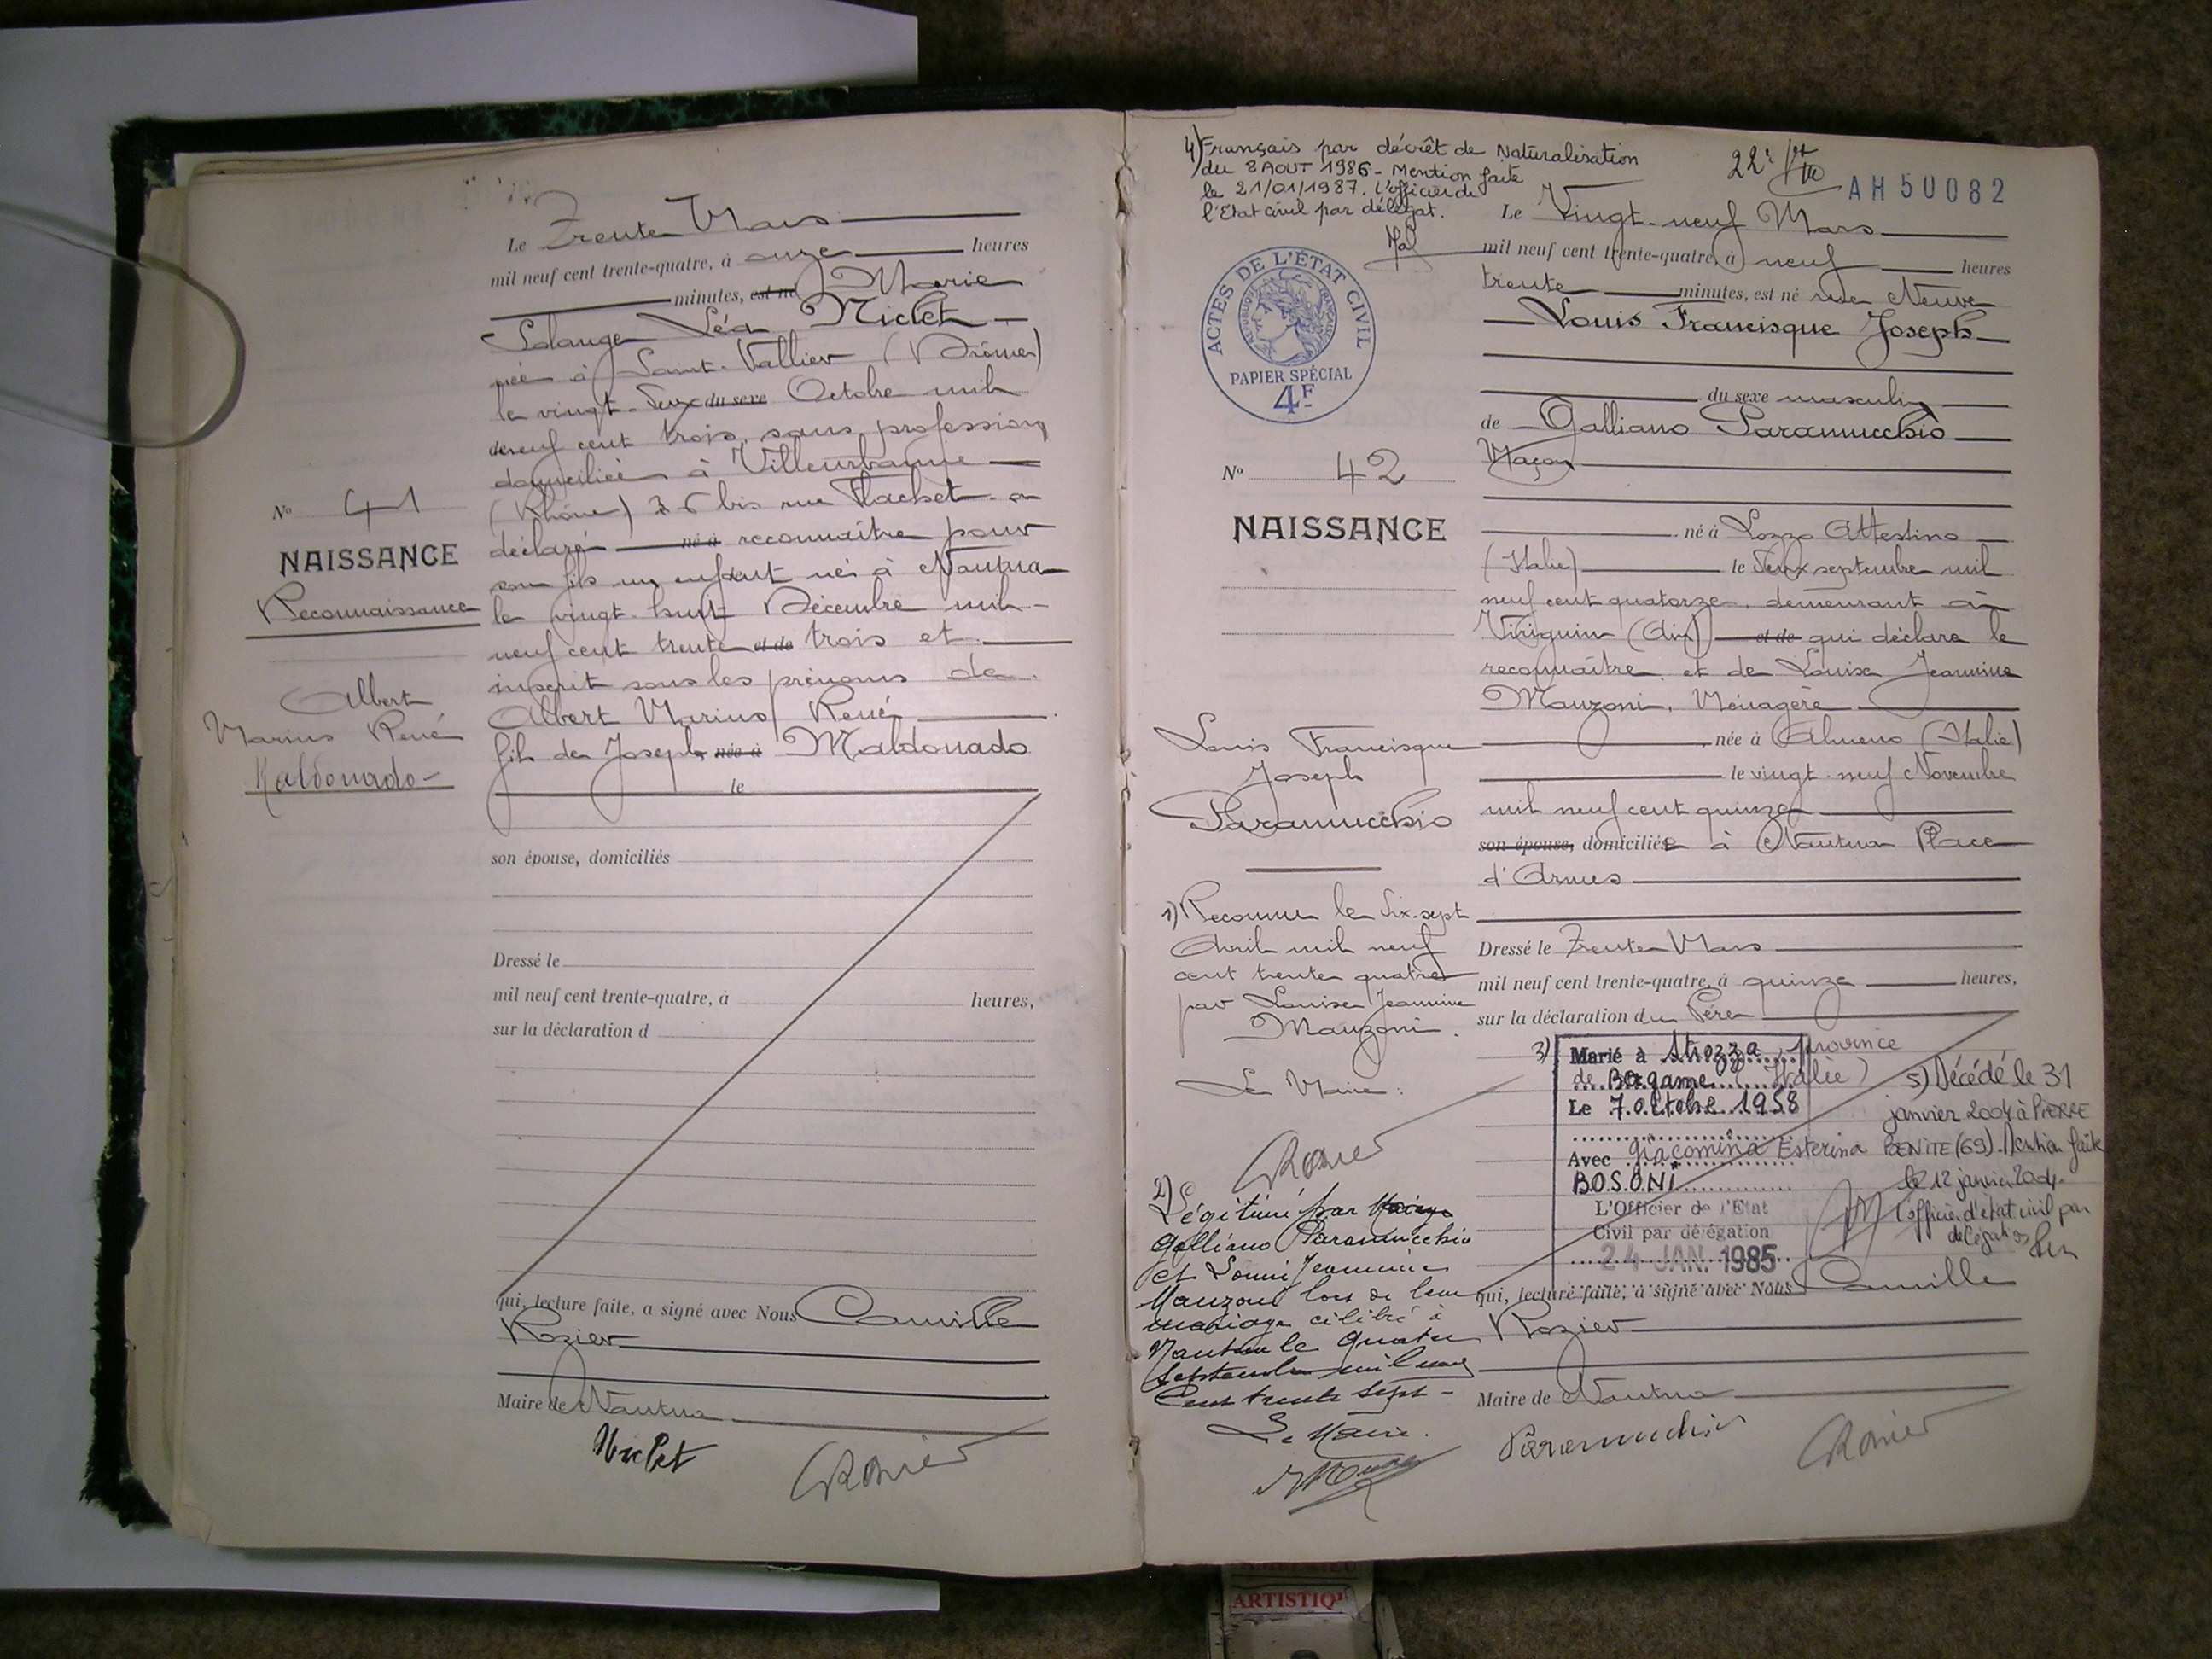 Le Trente Mars
mil neuf cent trente-quatre, à onze heures
minutes, est né Marie
Solange Léa Niclet
née à Saint-Vallier (Drôme)
le vingt-deux du sexe Octobre mil
neuf cent trois, sans profession
domiciliée à Villeurbanne
(Rhône) 36 bis rue Flachet a
déclaré né à reconnaître pour
son fils un enfant né à Nantua
le vingt-huit Décembre mil
neuf cent trente et de trois et
inscrit sous les prénoms de
Albert Marius René
fils de Joseph née à Maldonado
le
son épouse, domiciliés
Dressé le
mil neuf cent trente-quatre, à heures,
sur la déclaration d
qui, lecture faite, a signé avec Nous Camille
Rozier
Maire de Nantua
Niclet
CRozier
No 41
NAISSANCE
Reconnaissance
Albert
Marius René
Maldonado
4) Français par décrêt de Naturalisation
du 8 AOUT 1986 - Mention faite
le 21/01/1987. L'officier de
l'Etat Civil par délégat.
22e
AH50082
ACTES DE L'ÉTAT CIVIL
RÉPUBLIQUE FRANÇAISE
PAPIER SPÉCIAL
4F
No 42
NAISSANCE
Louis Francisque
Joseph
Paramucchio
1) Reconnu le dix-sept
Avril mil neuf
cent trente quatre
par Louise Jeannine
Manzoni.
Le Maire:
CRozier
2) Légitimé par
Galliano Paramucchio
et Louise Jeannine
Manzoni lors de leur
mariage célébré à
Nantua le quatre
Septembre mil neuf
Cent trente Sept -
Le Maire.
Le Vingt-neuf Mars
mil neuf cent trente-quatre, à neuf heures
trente minutes, est né rue Neuve
Louis Francisque Joseph
du sexe masculin
de Galliano Paramucchio
Maçon
né à Lozzo Attestino
(Italie) le deux septembre mil
neuf cent quatorze, demeurant à
Virignin (Ain) et de qui déclare le
reconnaître, et de Louise Jeannine
Manzoni, Ménagère
née à Almeno (Italie)
le vingt-neuf Novembre
mil neuf cent quinze
son épouse, domiciliée à Nantua Place
d'Armes
Dressé le Trente Mars
mil neuf cent trente-quatre, à quinze heures,
sur la déclaration du Père
3) Marié à Strozza, province
de Bergame (Italie)
Le 7 octobre 1958
Avec Giacomina Esterina
BOSONI
L'Officier de l'Etat
Civil par délégation
24 JAN. 1985
5) Décédé le 31
janvier 2004 à PIERRE
BENITE (69). Mention faite
le 12 janvier 2004.
L'officier d'état civil par
délégation
qui, lecture faite, a signé avec Nous Camille
Rozier
Maire de Nantua
Paramucchio
CRozier
ARTISTIQU